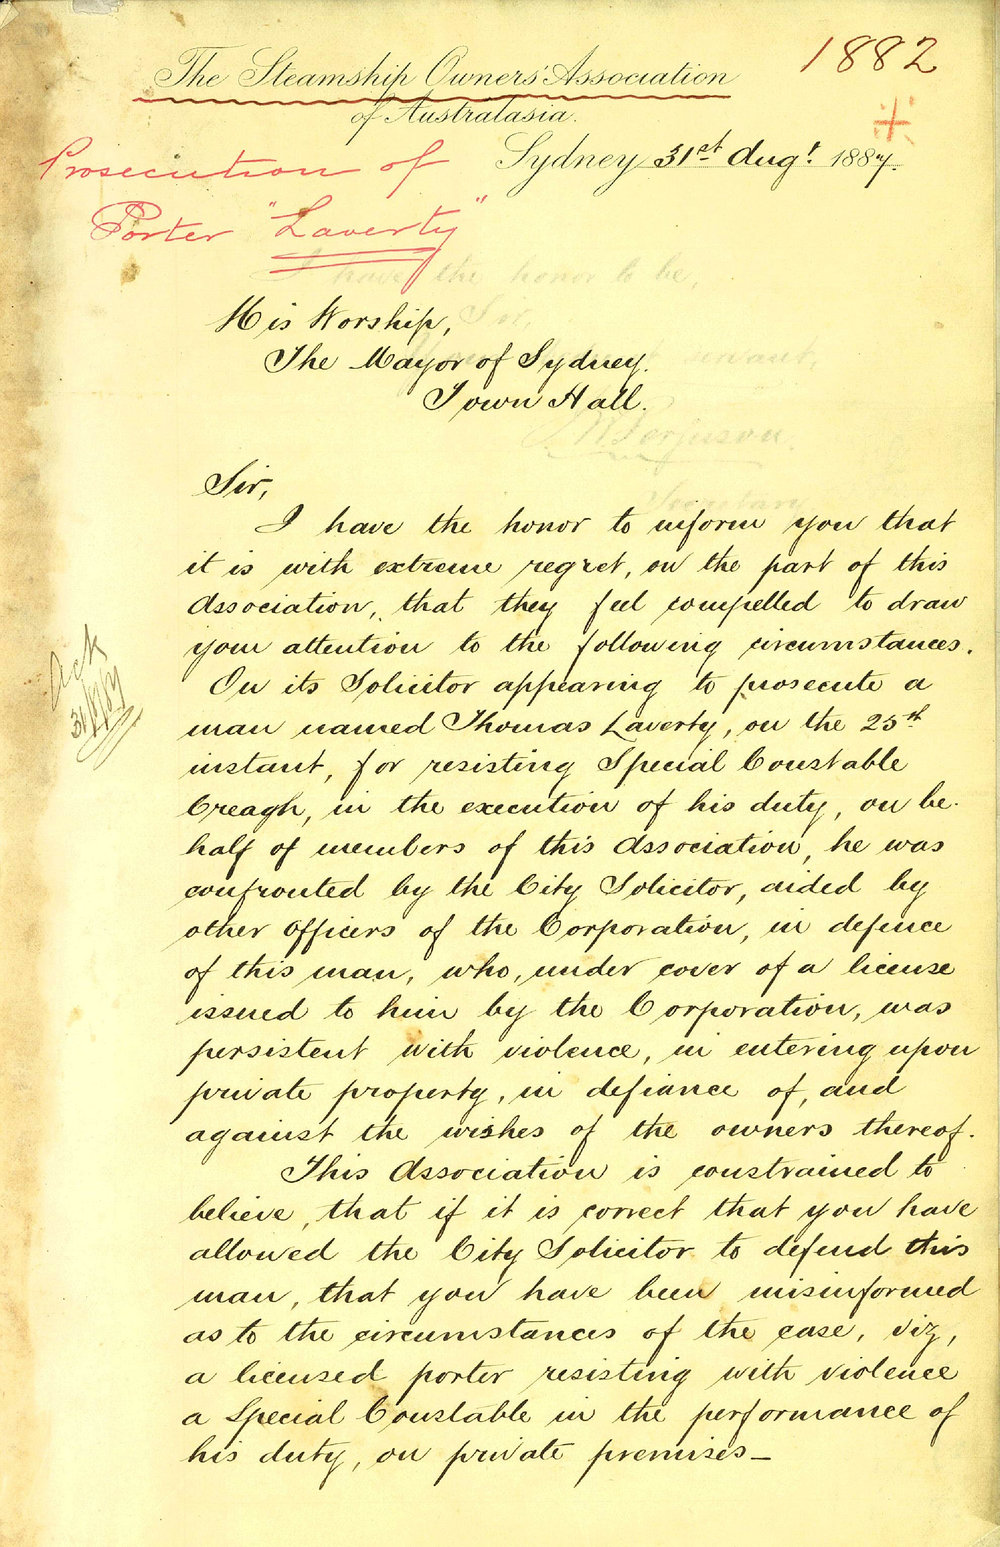 1882
The Steamship Owners' Association
of Australasia.
Sydney 31st Augt. 1887.
Prosecution of
Porter "Laverty"
I have the honor to be,
Sir,
servant,
W Ferguson.
Secretary
His Worship,
The Mayor of Sydney.
Town Hall.
Sir,
I have the honor to inform you that
it is with extreme regret, on the part of this
Association, that they feel compelled to draw
your attention to the following circumstances.
On its Solicitor appearing to prosecute a
man named Thomas Laverty, on the 25th
instant, for resisting Special Constable
Creagh, in the execution of his duty, on be-
half of members of this Association, he was
confronted by the City Solicitor, aided by
other Officers of the Corporation, in defence
of this man, who, under cover of a license
issued to him by the Corporation, was
persistent with violence, in entering upon
private property, in defiance of, and
against the wishes of the owners thereof.
This Association is constrained to
believe, that if it is correct that you have
allowed the City Solicitor to defend this
man, that you have been misinformed
as to the circumstances of the case, viz,
a licensed porter resisting with violence
a Special Constable in the performance of
his duty, on private premises—
Ack
31/8/87